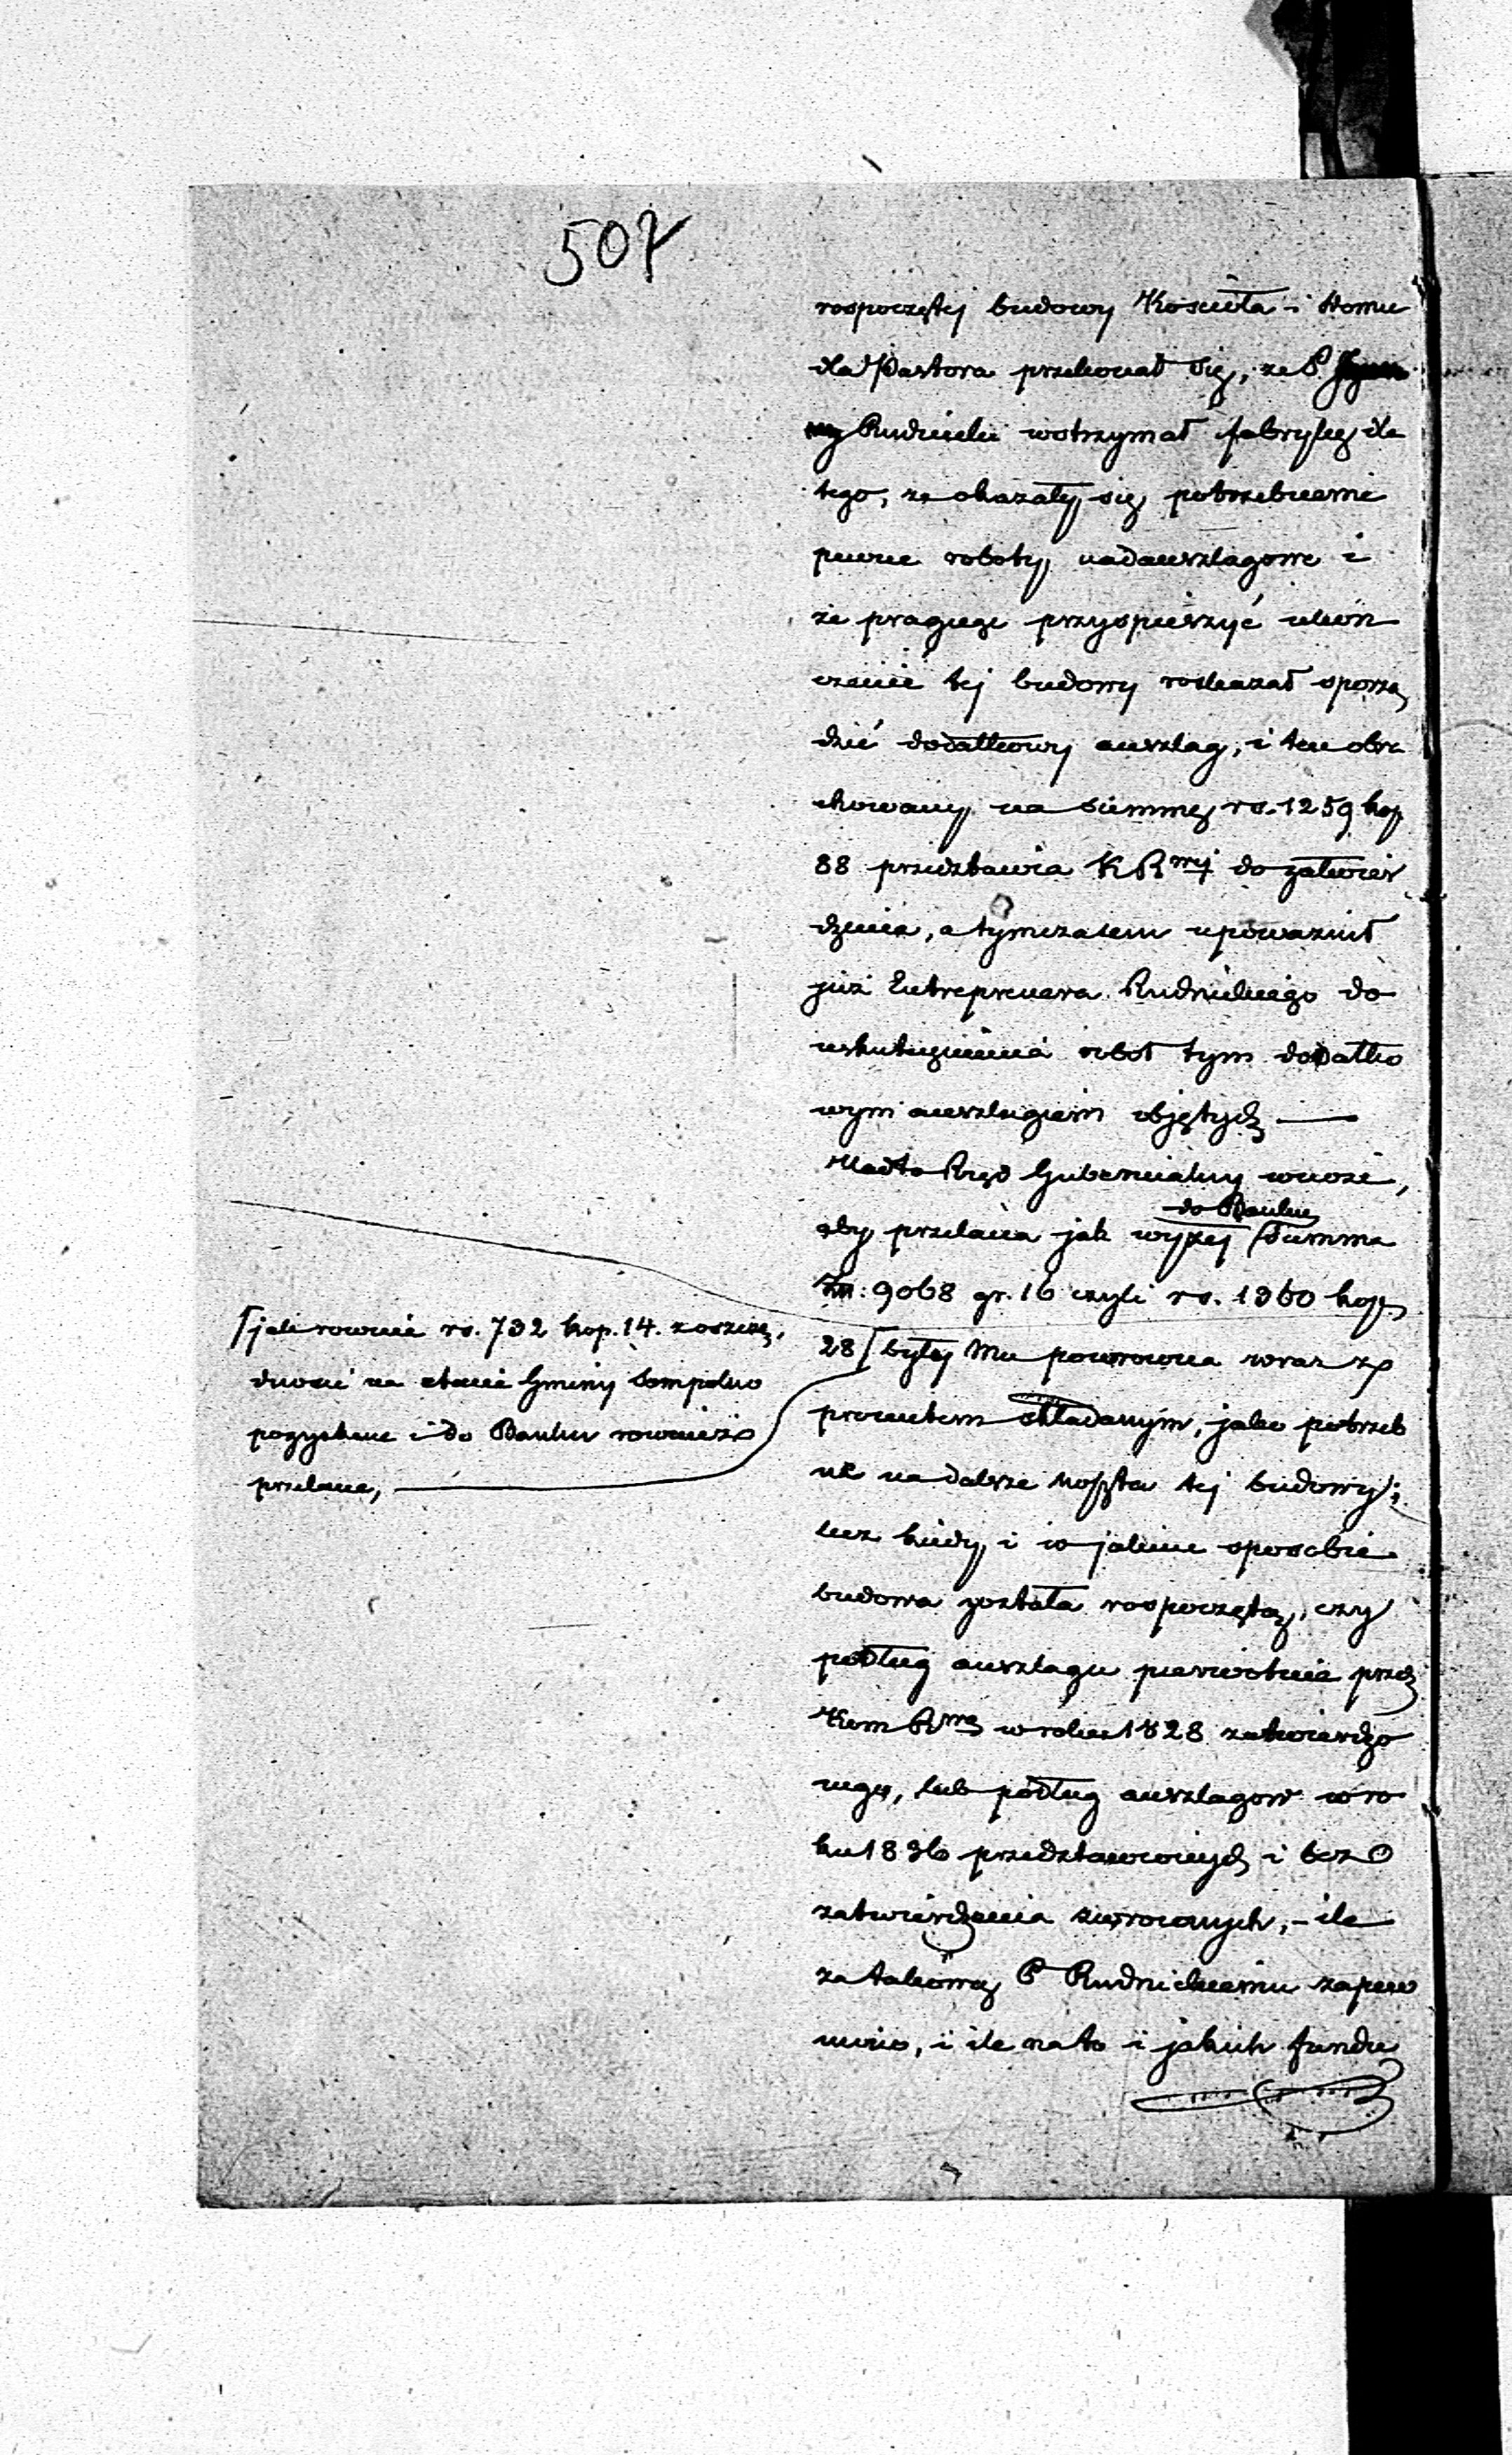 507
rospoczętej budowy Kościoła i Domu
dla Pastora przekonał się, że P.
Rudnicki wstrzymał fabrykę dla
tego, że okazały się potrzebnemi
pewne roboty nadanszlagowe i
że pragnąc przyspieszyć ukoń
czenie tej budowy roskazał sporzą
dzić dodatkowy anszlag, i ten obra
chowany na summę rs. 1259 kop
88 przedstawia K R wej do zatwier
dzenia, a tymczasem upoważnił
już Entreprenera Rudnickiego do
uskutecznienia robót tym dodatko
wym anszlagiem objętych —
Nadto Rząd Gubernialny wnosi,
do Banku
aby przelana jak wyżej summa
Zł: 9068 gr. 16 czyli rs. 1360 kop
28 ⌈ byłej Mu powrócona wraz z
procentem składanym, jako potrzeb
ne na dalsze koszta tej budowy;
lecz kiedy i w jakim sposobie
budowa została rospoczętą, czy
podług anszlagu pierwotnie przez
Kom Rwą w roku 1828 zatwierdzo
nego, lub podług anszlagów w ro
ku 1836 przedstawionych i bez
zatwierdzenia zwroconych, – ile
za takową P Rudnickiemu zapew
niono, i ile na to i jakich fundu
⌈ jak rownie rs. 732 kop. 14. z oszczę,
dności na etacie Gminy Sompolno
pozyskane i do Banku również
przelane, —